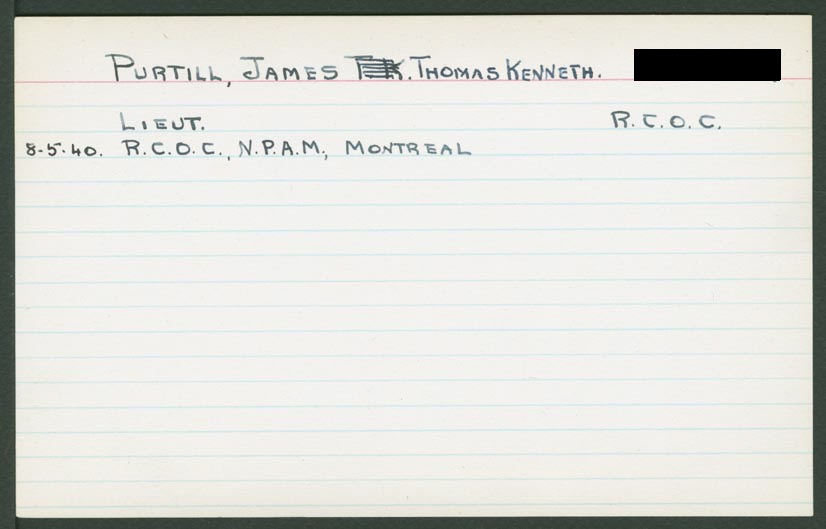 PURTILL, JAMES T.K. THOMAS KENNETH.
LIEUT. R.C.O.C.
8-5-40. R.C.O.C., N.P.A.M., MONTREAL